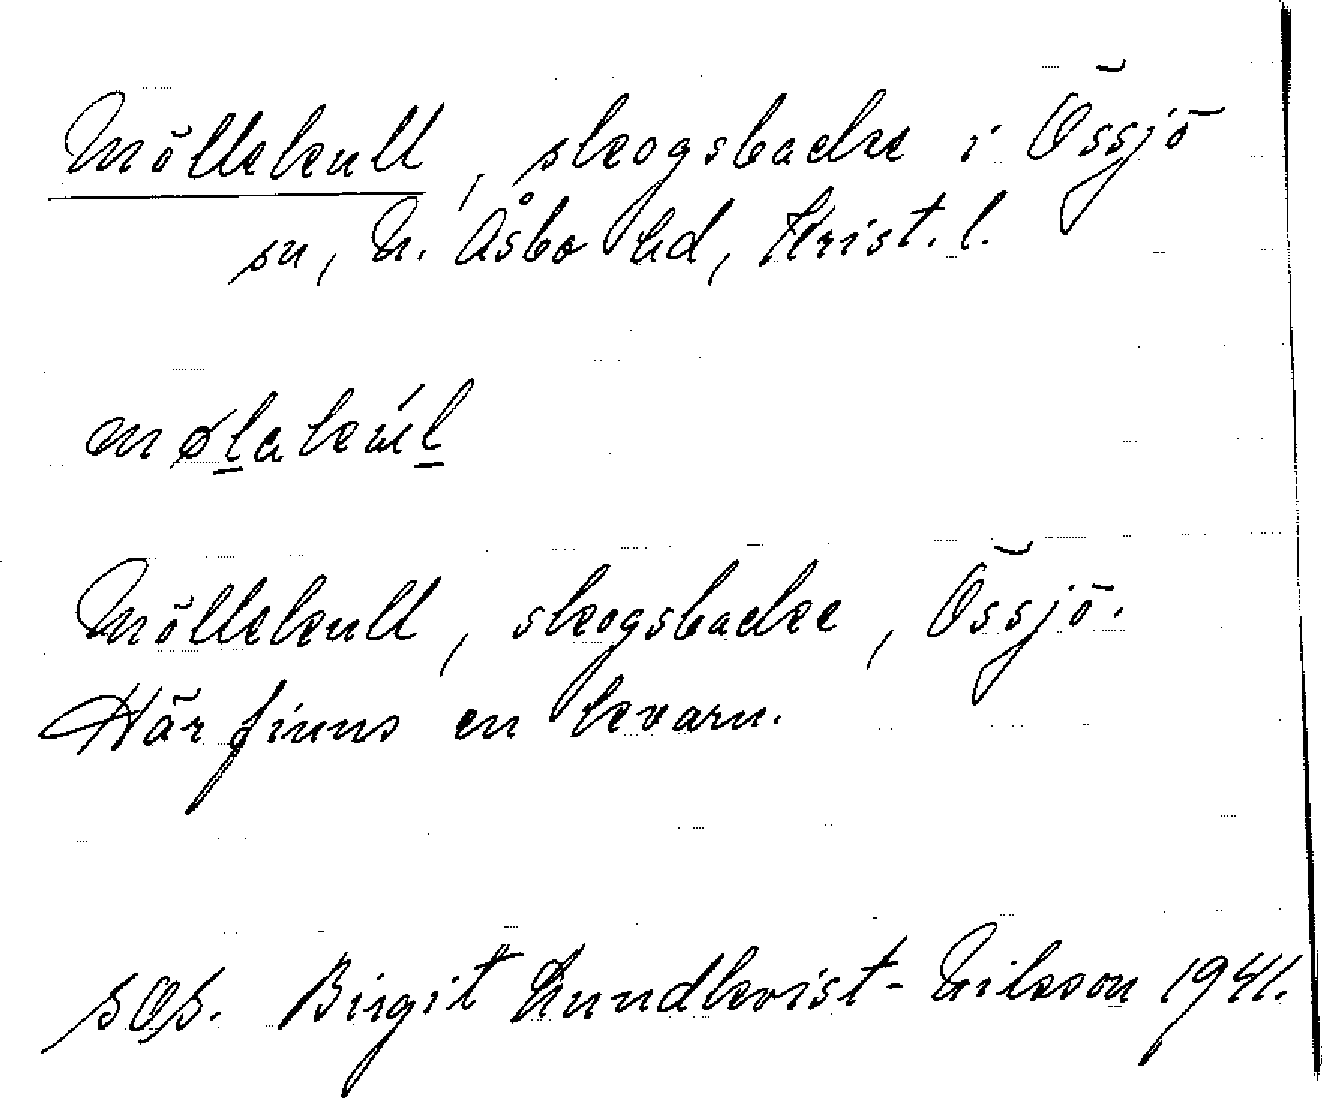 Möllekull, skogsbacke i Össjö
sn, N. Åsbo hd, Krist. l.
mølakúl
Möllekull, skogsbacke, Össjö.
Här finns en kvarn.
Birgit Lundkvist-Nilsson 1941.